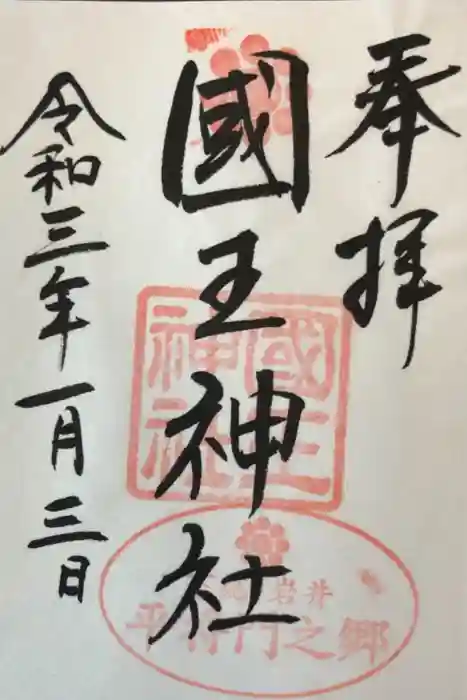 奉拝
國王神社
令和三年一月三日
國王神社
岩井
平將門之郷